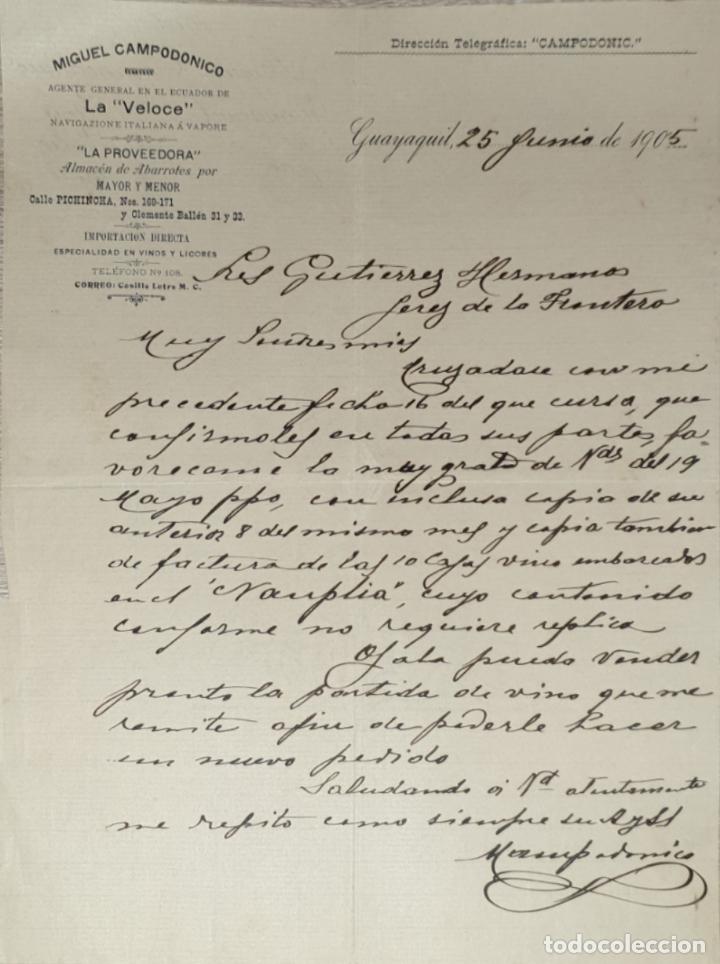 MIGUEL CAMPODONICO
AGENTE GENERAL EN EL ECUADOR DE
La "Veloce"
NAVIGAZIONE ITALIANA Á VAPORE
"LA PROVEEDORA"
Almacén de Abarrotes por
MAYOR Y MENOR
Calle PICHINCHA, Nos. 169-171
y Clemente Ballén 31 y 33.
IMPORTACION DIRECTA
ESPECIALIDAD EN VINOS Y LICORES
TELÉFONO Nº 108.
CORREO: Casilla Letra M. C.
Dirección Telegráfica: "CAMPODONIC."
Guayaquil, 25 Junio de 1905
Sres Gutierrez Hermanos
Jerez de la Frontera
Muy Señores mios
Cruzadase con mi
precedente fecha 16 del que cursa, que
confirmoles en todas sus partes, fa
vorecame la muy grata de Vds del 19
Mayo ppo, con inclusa copia de su
anterior 8 del mismo mes y copia tambien
de factura de las 10 Cajas vino embarcados
en el "Nauplia", cuyo contenido
conforme no requiere replica
Ojala puedo vender
pronto la partida de vino que me
remite afin de poderle hacer
un nuevo pedido
Saludando á Vd atentamente
me repito como siempre su
MCampodonico
todocoleccion